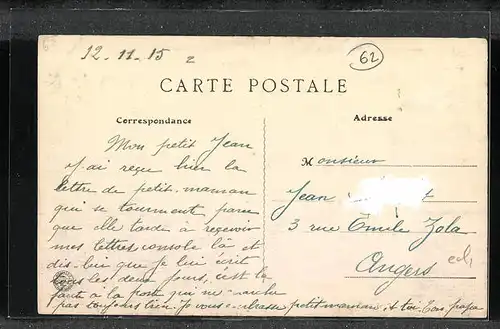 12-11-15 2
62
CARTE POSTALE
Correspondance
Mon petit Jean
J'ai reçu hier la
lettre de petit-maman
qui se tourment parce
que elle tarde à recevoir
mes lettres console là et
dis-lui que je lui écrit
tous les deux jours, c'est la
faute à la poste qui ne marche
pas toujours bien Je vous embrasse petit maman, & toi Ton papa
Adresse
Monsieur
Jean
3 rue Émile Zola
Angers